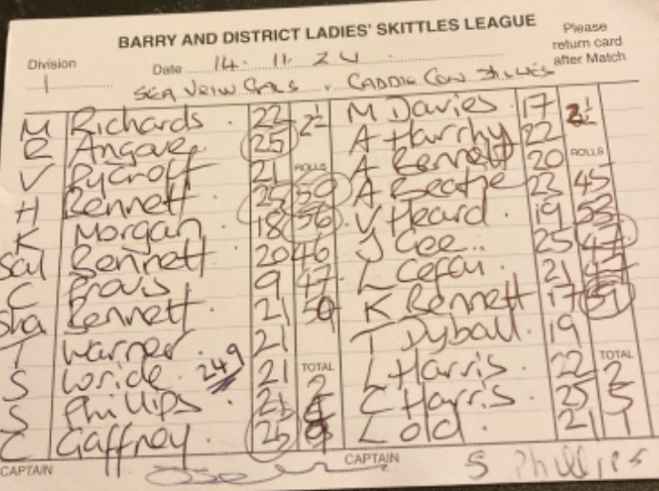 BARRY AND DISTRICT LADIES' SKITTLES LEAGUE
Division 1 Date 14. 11. 24 Please return card after Match
SEA VEIW GALS v CADDIE COW
M Richards 22 2½ M Davies 17 2½
R Angove 25 A Harrhy 22
V Pycroft 21 ROLLS A Bennett 20 ROLLS
H Bennett 25 50 A Beatie 23 45
K Morgan 18 56 V Heard 19 53
Sal Bennett 20 46 J Gee 25 47
C Pravis 9 47 L Cefai 21
Sha Bennett 21 50 K Bennett 17 51
T Warner 21 T Dyball 19
S Loride 249 21 TOTAL L Harris 22 TOTAL
S Phillips 21 2 C Harris 25 2
C Gaffney 25 L Old 21 5
CAPTAIN CAPTAIN S Phillips